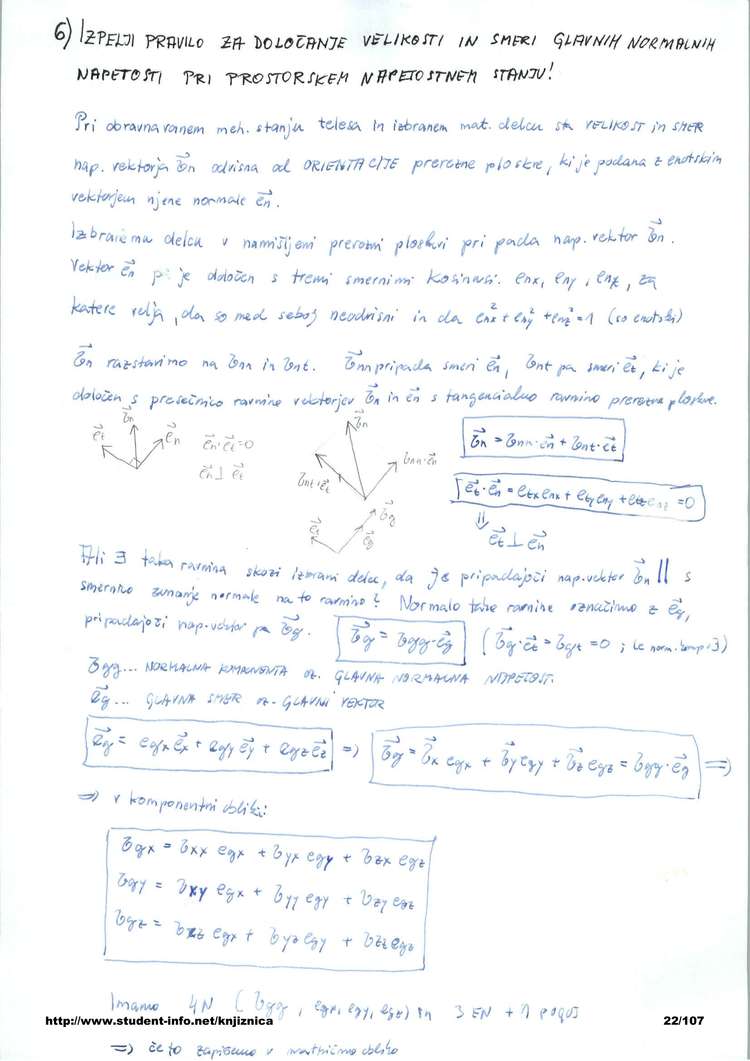 6) IZPELJI PRAVILO ZA DOLOČANJE VELIKOSTI IN SMERI GLAVNIH NORMALNIH
NAPETOSTI PRI PROSTORSKEM NAPETOSTNEM STANJU!
Pri obravnavanem meh. stanju telesa in izbranem mat. delcu sta VELIKOST in SMER
nap. vektorja σn odvisna od ORIENTACIJE prerezne ploskve, ki je podana z enotskim
vektorjem njene normale en.
Izbranemu delcu v namišljeni prerezni ploskvi pripada nap. vektor σn.
Vektor en pa je določen s tremi smernimi kosinusi. enx, eny, enz, za
katere velja, da so med seboj neodvisni in da enx² + eny² + enz² = 1 (so enotski)
σn razstavimo na σnn in σnt. σnn pripada smeri en, σnt pa smeri et, ki je
določen s presečnico ravnine vektorjev σn in en s tangencialno ravnino prerezne ploskve.
et σn en en·et=0
en ⊥ et
σn σnt·et σnn·en
σn = σnn·en + σnt·et
et·en = etx enx + ety eny + etz enz = 0
⇓
et ⊥ en
Ali ∃ taka ravnina skozi izbrani delec, da je pripadajoči nap. vektor σn || s
smernico zunanje normale na to ravnino? Normalo take ravnine označimo z eg,
pripadajoči nap. vektor pa σg. σg = σgg·eg (σg·et = σgt = 0 ; le norm. komp ∃)
σgg... NORMALNA KOMPONENTA oz. GLAVNA NORMALNA NAPETOST.
eg... GLAVNA SMER oz. GLAVNI VEKTOR
eg = egx ex + egy ey + egz ez ⇒ σg = σx egx + σy egy + σz egz = σgg·eg ⇒
⇒ v komponentni obliki:
σgx = σxx egx + σyx egy + σzx egz
σgy = σxy egx + σyy egy + σzy egz
σgz = σxz egx + σyz egy + σzz egz
Imamo 4N (σgg, egx, egy, egz) in 3 EN + 1 pogoj
http://www.student-info.net/knjiznica 22/107
⇒ če to zapišemo v matrično obliko